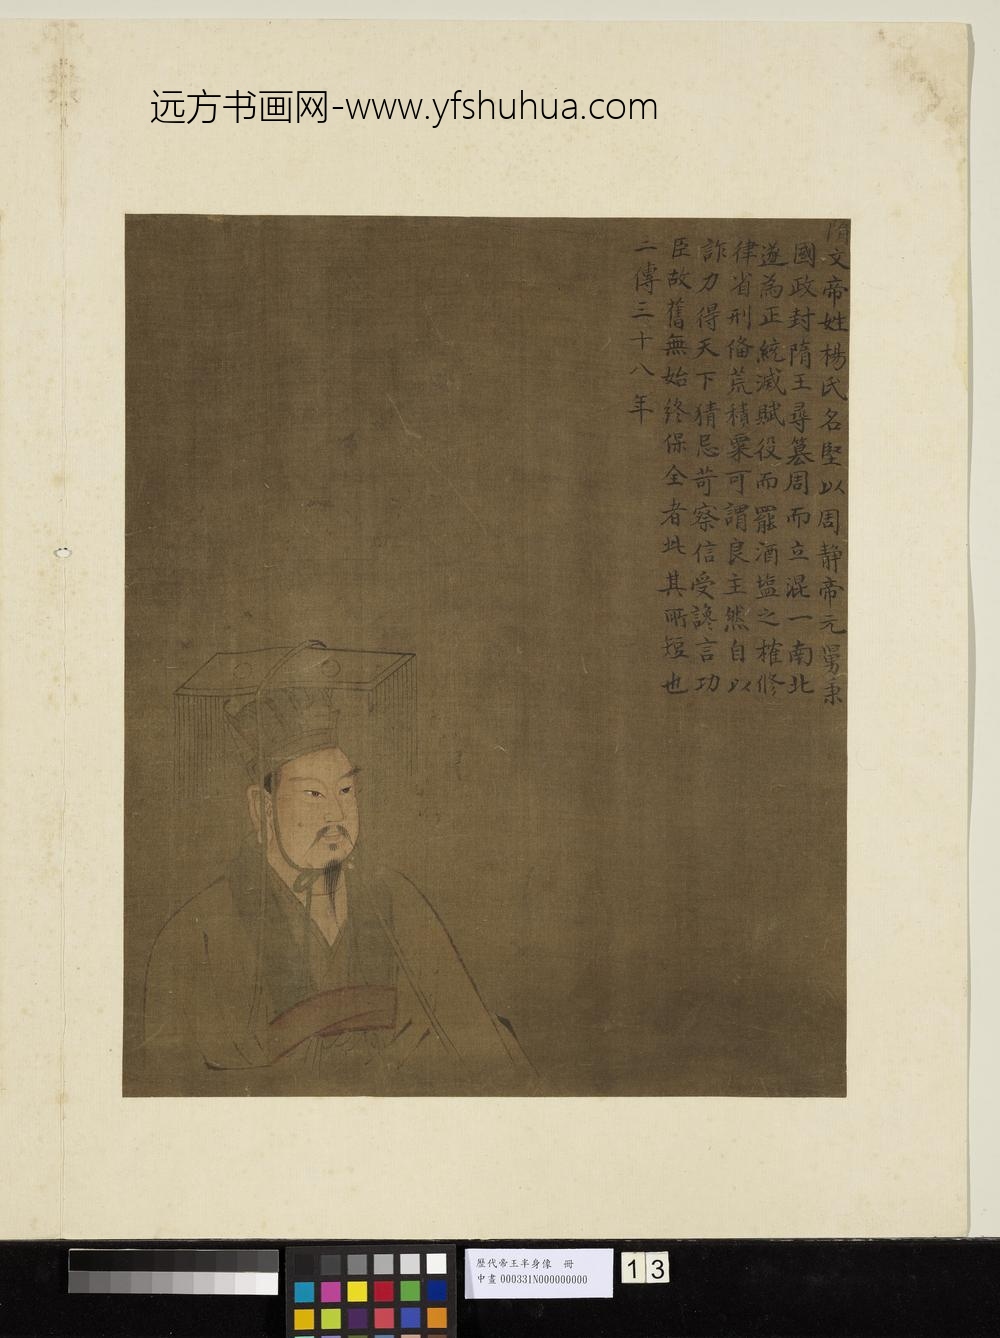 远方书画网-www.yfshuhua.com
隋文帝姓楊氏名堅以周静帝元舅秉
國政封隋王尋篡周而立混一南北
遂為正統減賦役而罷酒塩之榷修
律省刑俻荒積粟可謂良主然自以
詐力得天下猜忌苛察信受讒言功
臣故舊無始終保全者此其所短也
二傳三十八年
歷代帝王半身像 冊
中畫 000331N000000000
13